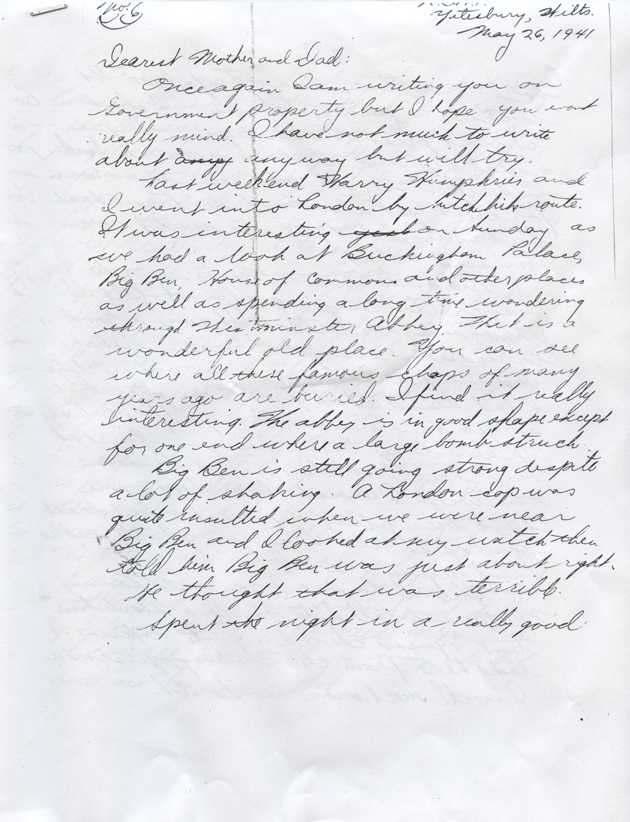 No. 6
Yatesbury, Wilts.
May 26, 1941
Dearest Mother and Dad:
Once again I am writing you on
Government property but I hope you wont
really mind. I have not much to write
about any anyway but will try.
Last weekend Harry Humphries and
I went into London by hitch hike route.
It was interesting on Sunday as
we had a look at Buckingham Palace,
Big Ben, House of Commons and other places
as well as spending a long time wondering
through Westminster Abbey. That is a
wonderful old place. You can see
where all these famous chaps of many
years ago are buried. I find it really
interesting. The abbey is in good shape except
for one end where a large bomb struck.
Big Ben is still going strong despite
a lot of shaking. A London cop was
quite insulted when we were near
Big Ben and I looked at my watch then
told him Big Ben was just about right.
He thought that was terrible.
Spent the night in a really good